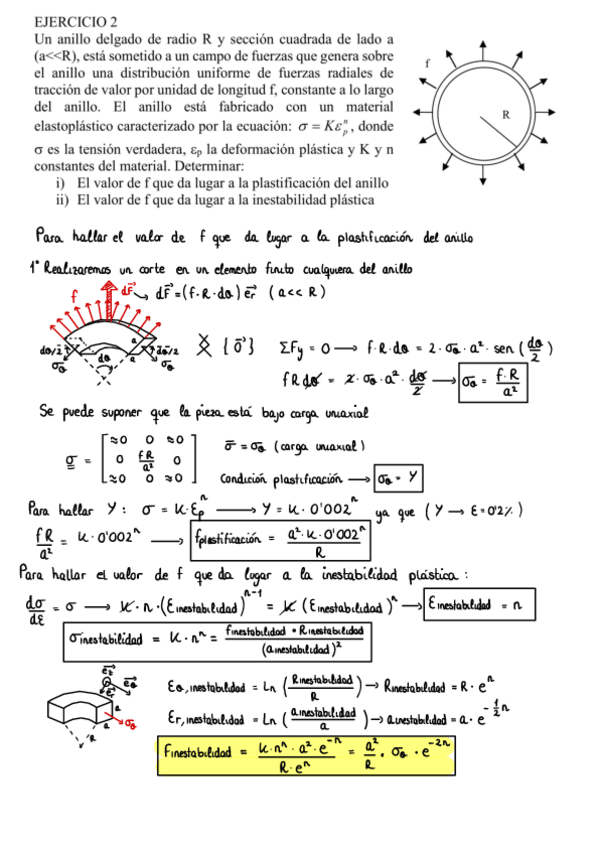 EJERCICIO 2
Un anillo delgado de radio R y sección cuadrada de lado a
(a<<R), está sometido a un campo de fuerzas que genera sobre
el anillo una distribución uniforme de fuerzas radiales de
tracción de valor por unidad de longitud f, constante a lo largo
del anillo. El anillo está fabricado con un material
elastoplástico caracterizado por la ecuación: σ = Kεₚⁿ, donde
σ es la tensión verdadera, εₚ la deformación plástica y K y n
constantes del material. Determinar:
i) El valor de f que da lugar a la plastificación del anillo
ii) El valor de f que da lugar a la inestabilidad plástica
f
R
Para hallar el valor de f que da lugar a la plastificación del anillo
1º Realizaremos un corte en un elemento finito cualquiera del anillo
f dF⃗ → dF⃗ = (f·R·dθ) e⃗r (a<<R)
dθ/2 a dθ a dθ/2
σθ σθ
{0⃗} ΣFy = 0 → f·R·dθ = 2·σθ·a²·sen(dθ/2)
f R dθ = 2·σθ·a²·dθ/2 → σθ = f·R/a²
Se puede suponer que la pieza está bajo carga uniaxial
σ = [≈0 0 ≈0
0 fR/a² 0
≈0 0 ≈0]
σ̄ = σθ (carga uniaxial)
Condición plastificación → σθ = Y
Para hallar Y: σ = K·εₚⁿ → Y = K·0'002ⁿ ya que (Y → ε=0'2%)
fR/a² = K·0'002ⁿ → fplastificación = a²·K·0'002ⁿ/R
Para hallar el valor de f que da lugar a la inestabilidad plástica:
dσ/dε = σ → K·n·(εinestabilidad)ⁿ⁻¹ = K(εinestabilidad)ⁿ → εinestabilidad = n
σinestabilidad = K·nⁿ = finestabilidad·Rinestabilidad/(ainestabilidad)²
e⃗z e⃗θ e⃗r
a
a σθ
R
εθ,inestabilidad = Ln(Rinestabilidad/R) → Rinestabilidad = R·eⁿ
εr,inestabilidad = Ln(ainestabilidad/a) → ainestabilidad = a·e^(-1/2 n)
Finestabilidad = K·nⁿ·a²·e⁻ⁿ/R·eⁿ = a²/R·σθ·e⁻²ⁿ